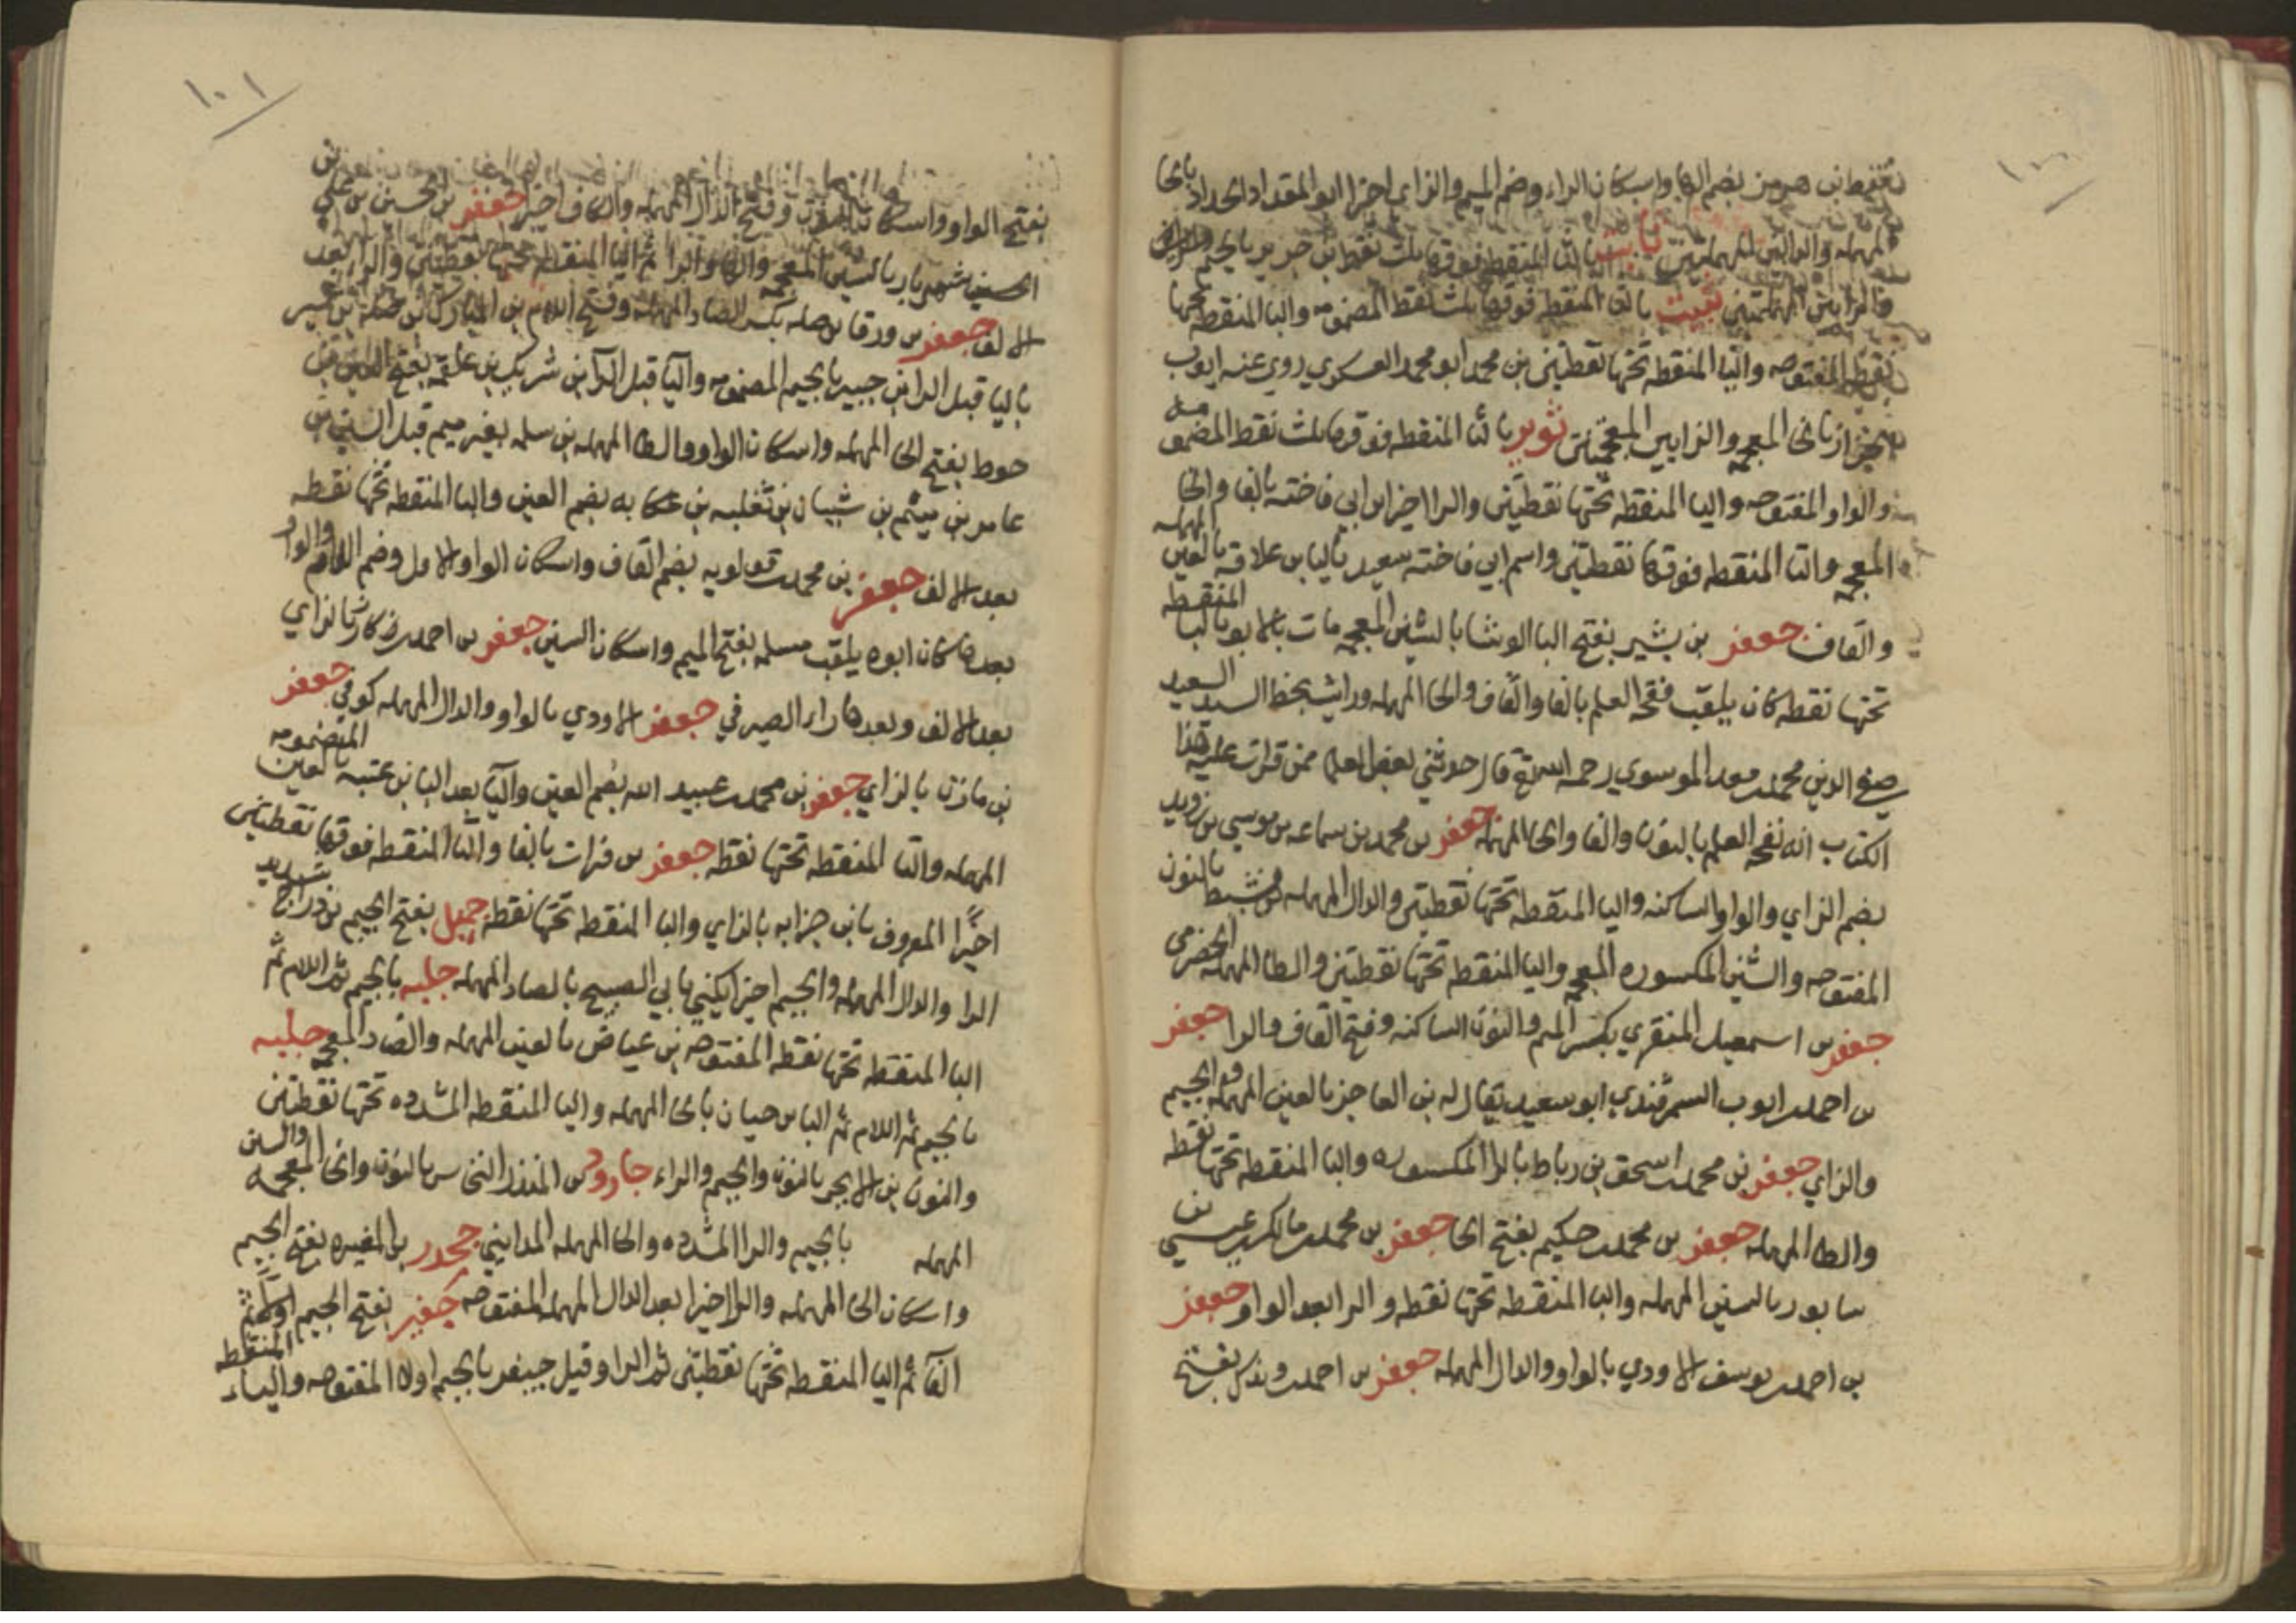 ١٠٠
نقط بن هرمز بضم الها واسكان الراء وضم الميم والزاي اخيرا ابو المقداد الحداد بالحا
المهمله والدالين المهملتين ثابت بالثا المنقطه فوقها ثلث نقط بن جرير بالجيم
والرايين المهملتين ثبيت بالثا المنقطه فوقها ثلث نقط المضمومه والبا المنقطه تحتها
نقطه المفتوحه واليا المنقطه تحتها نقطتين بن محمد ابو محمد العسكري روي عنه ايوب
الخزاز بالخا المعجمه والزايين المعجمتين ثوير بالثا المنقطه فوقها ثلث نقط المضمومه
والواو المفتوحه واليا المنقطه تحتها نقطتين والرا اخيرا بن ابي فاخته بالفا والخا
المعجمه والتا المنقطه فوقها نقطتين واسم ابي فاخته سعيد باليا بن علاقه بالعين المهمله
والقاف جعفر بن بشير بفتح البا الوشا بالشين المعجمه مات بالابوا بالبا المنقطه
تحتها نقطه كان يلقب فقحه العلم بالفا والقاف والحا المهمله ورايت بخط السيد السعيد
صفي الدين محمد بن معد الموسوي رحمه الله قال حدثني بعض العلما ممن قرات عليه هذا
الكتاب انه نفحه العلم بالنون والفا والحا المهمله جعفر بن محمد بن سماعه بن موسي بن زويد
بضم الزاي والواو الساكنه واليا المنقطه تحتها نقطتين والدال المهمله بن نشيط بالنون
المفتوحه والشين المكسوره المعجمه واليا المنقطه تحتها نقطتين والطا المهمله الحضرمي
جعفر بن اسمعيل المنقري بكسر الميم والنون الساكنه وفتح القاف والرا جعفر
بن احمد بن ايوب السمرقندي ابو سعيد يقال له بن العاجز بالعين المهمله والجيم
والزاي جعفر بن محمد بن اسحق بن رباط بالرا المكسوره والبا المنقطه تحتها نقطه
والطا المهمله جعفر بن محمد بن حكيم بفتح الحا جعفر بن محمد بن مالك بن عيسي بن
سابور بالسين المهمله والبا المنقطه تحتها نقطه والرا بعد الواو جعفر
بن احمد بن يوسف الاودي بالواو والدال المهمله جعفر بن احمد بن وندك بفتح
١٠١
بفتح الواو واسكان النون وفتح الدال المهمله والكاف اخيرا جعفر بن الحسين بن علي بن
الحسين بن شهريار بالشين المعجمه والها والرا ثم اليا المنقطه تحتها نقطتين والرا بعد
الالف جعفر بن ورقا بن صله بكسر الصاد المهمله وفتح اللام بن المبارك بن صله بن عمير
باليا قبل الرا بن جبير بالجيم المضمومه واليا قبل الرا بن شريك بن علقمه بفتح العين بن
حوط بفتح الحا المهمله واسكان الواو والطا المهمله بن سلمه بغير ميم قبل السين بن
عامر بن ميثم بن شيبان بن ثعلبه بن عكابه بضم العين والبا المنقطه تحتها نقطه
بعد الالف جعفر بن محمد بن قولويه بضم القاف واسكان الواو الاول وضم اللام والواو
بعدها كان ابوه يلقب مسلمه بفتح الميم واسكان السين جعفر بن احمد بن زكار بالزاي
بعد الالف وبعدها راء الصيرفي جعفر الاودي بالواو والدال المهمله كوفي جعفر
بن مازن بالزاي جعفر بن محمد بن عبيد الله بضم العين واليا بعد البا بن عتبه بالعين المضمومه
المهمله والبا المنقطه تحتها نقطه جعفر بن فرات بالفا والتا المنقطه فوقها نقطتين
اخيرا المعروف بابن جزابه بالزاي والبا المنقطه تحتها نقطه جميل بفتح الجيم بن دراج بتشديد
الرا والدال المهمله والجيم اخيرا يكني بابي الصبيح بالصاد المهمله جلبه بالجيم ثم اللام ثم
البا المنقطه تحتها نقطه المفتوحه بن عياض بالعين المهمله والضاد المعجمه جلبه
بالجيم ثم اللام ثم البا بن حيان بالحا المهمله واليا المنقطه المشدده تحتها نقطتين
والنون بن الابجر بالنون والجيم والراء جارود بن المنذر النخاس بالنون والخا المعجمه والسين
المهمله بالجيم والرا المشدده والحا المهمله المدايني جحدر بن المغيره بفتح الجيم
واسكان الحا المهمله والرا اخيرا بعد الدال المهمله المفتوحه جفير بفتح الجيم اولا ثم
الفا ثم اليا المنقطه تحتها نقطتين ثم الرا وقيل جيفر بالجيم اولا المفتوحه والياء المنقطه